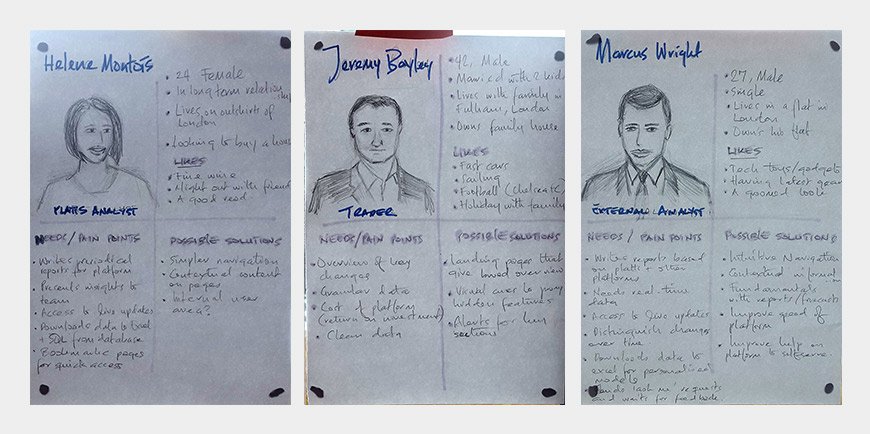 Helene Montois
• 24 Female
• In long term relationship
• Lives on outskirts of
London
• Looking to buy a house
LIKES
• Fine wine
• Night out with friends
• A good read
PLATTS ANALYST
NEEDS/PAIN POINTS
• Writes periodical
reports for platform
• Presents insights to
team
• Access to live updates
• Downloads data to Excel
+ SQL from database
• Bookmarks pages
for quick access
POSSIBLE SOLUTIONS
• Simpler navigation
• Contextual content
on pages
• Internal user
area?
Jeremy Bayley
• 42, Male
• Married with 2 kids
• Lives with family in
Fulham, London
• Owns family house
LIKES
• Fast cars
• Sailing
• Football (Chelsea FC)
• Holiday with family
TRADER
NEEDS/PAIN POINTS
• Overview of key
changes
• Granular data
• Cost of platform
(return on investment)
• Clean data
POSSIBLE SOLUTIONS
• Landing pages that
give broad overview
• Visual cues to
hidden features
• Alerts for key
sections
Marcus Wright
• 27, Male
• Single
• Lives in a flat in
London
• Owns his flat
LIKES
• Tech toys/gadgets
• Having latest gear
• A groomed look
EXTERNAL ANALYST
NEEDS / PAIN POINTS
• Writes reports based
on platts + other
platforms
• Needs real-time
data
• Access to live updates
• Distinguish changes
over time
• Downloads data to
excel for personalised
models
• Sends 'ask me' requests
and waits for feedback
POSSIBLE SOLUTIONS
• Intuitive Navigation
• Contextual
• Fundamentals
with reports/forecasts
• Improve speed of
platform
• Improve help on
platform to self serve.